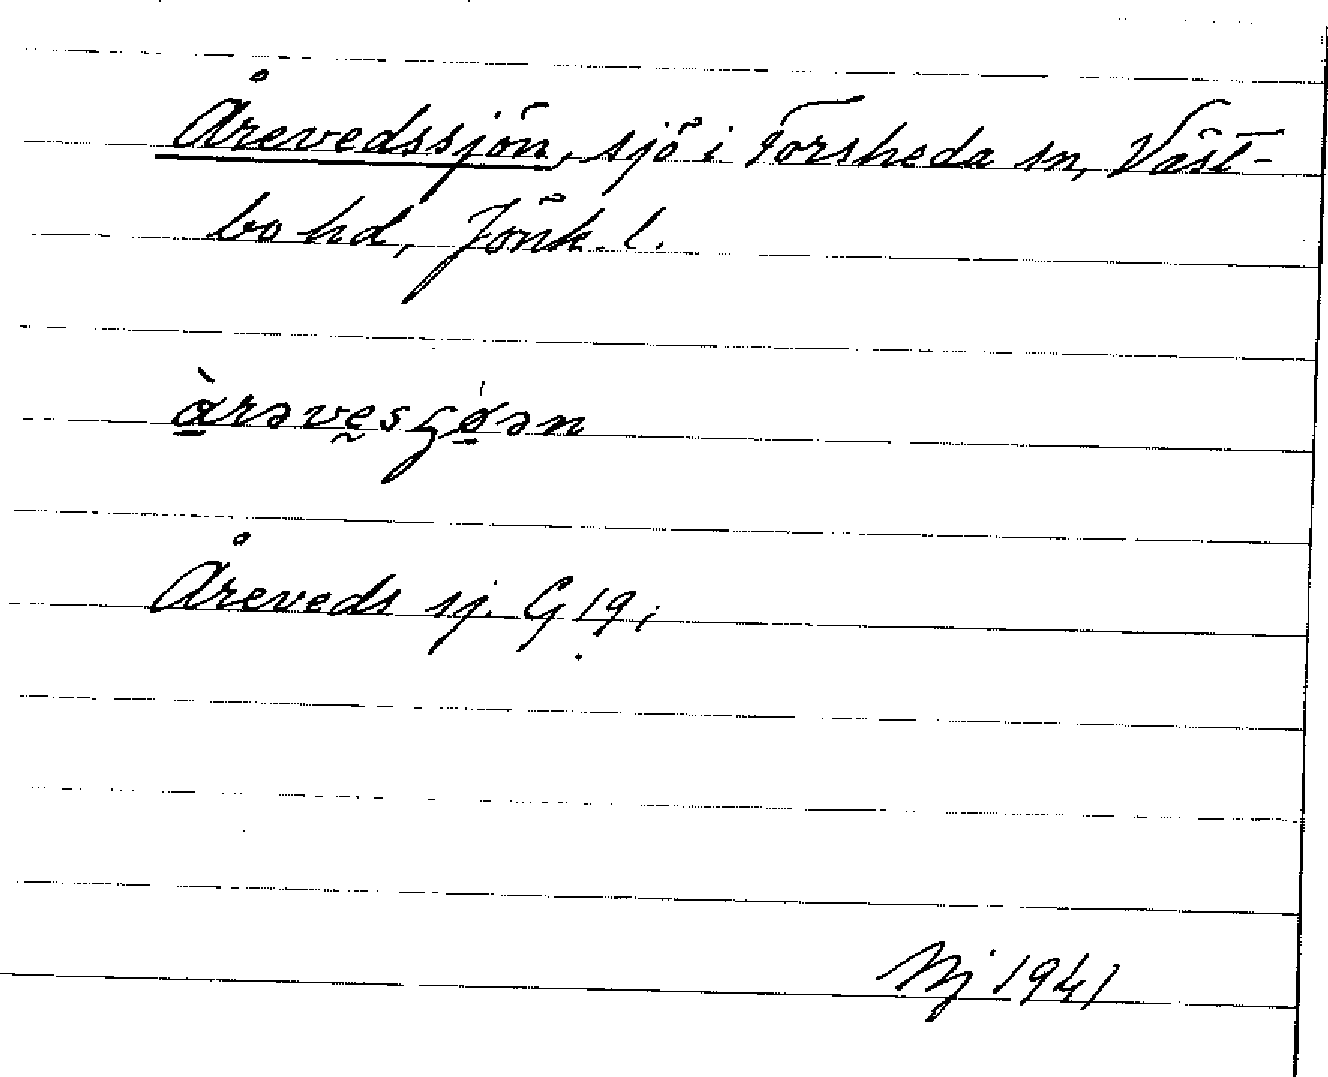 Årevedssjön, sjö i Forsheda sn, Väst-
bo hd, Jönk. l.
àrəvesʂøən
Åreveds sj. G 19,
Nj 1941